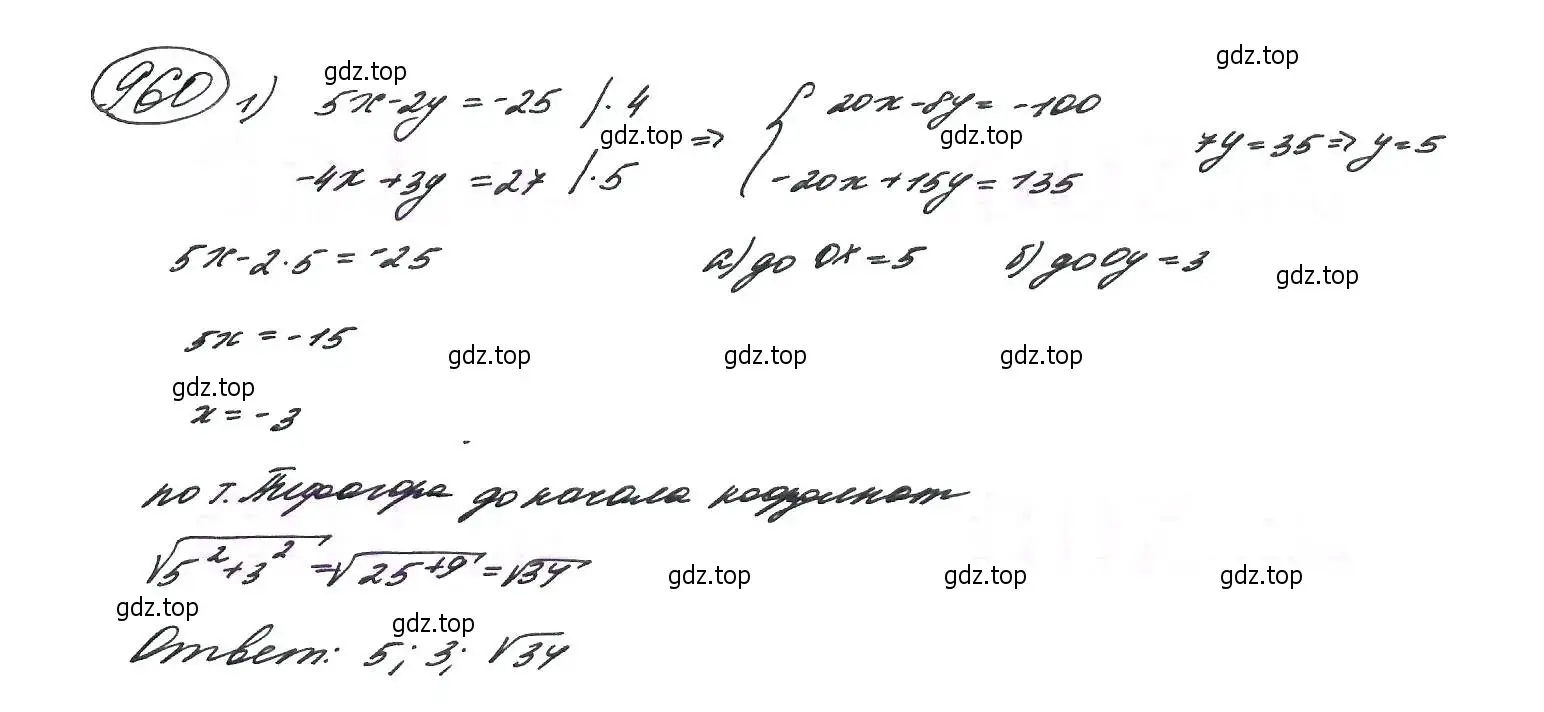 960 1) 5x-2y = -25 /·4 ⇒ { 20x-8y = -100
-4x+3y = 27 /·5 { -20x+15y = 135 7y=35 ⇒ y=5
5x-2·5 = -25 а) до Ox = 5 б) до Oy = 3
5x = -15
x = -3
по т. Пифагора до начала координат
√(5²+3²) = √(25+9) = √34
Ответ: 5; 3; √34
gdz.top
gdz.top
gdz.top
gdz.top
gdz.top
gdz.top
gdz.top
gdz.top
gdz.top
gdz.top
gdz.top
gdz.top
gdz.top
gdz.top